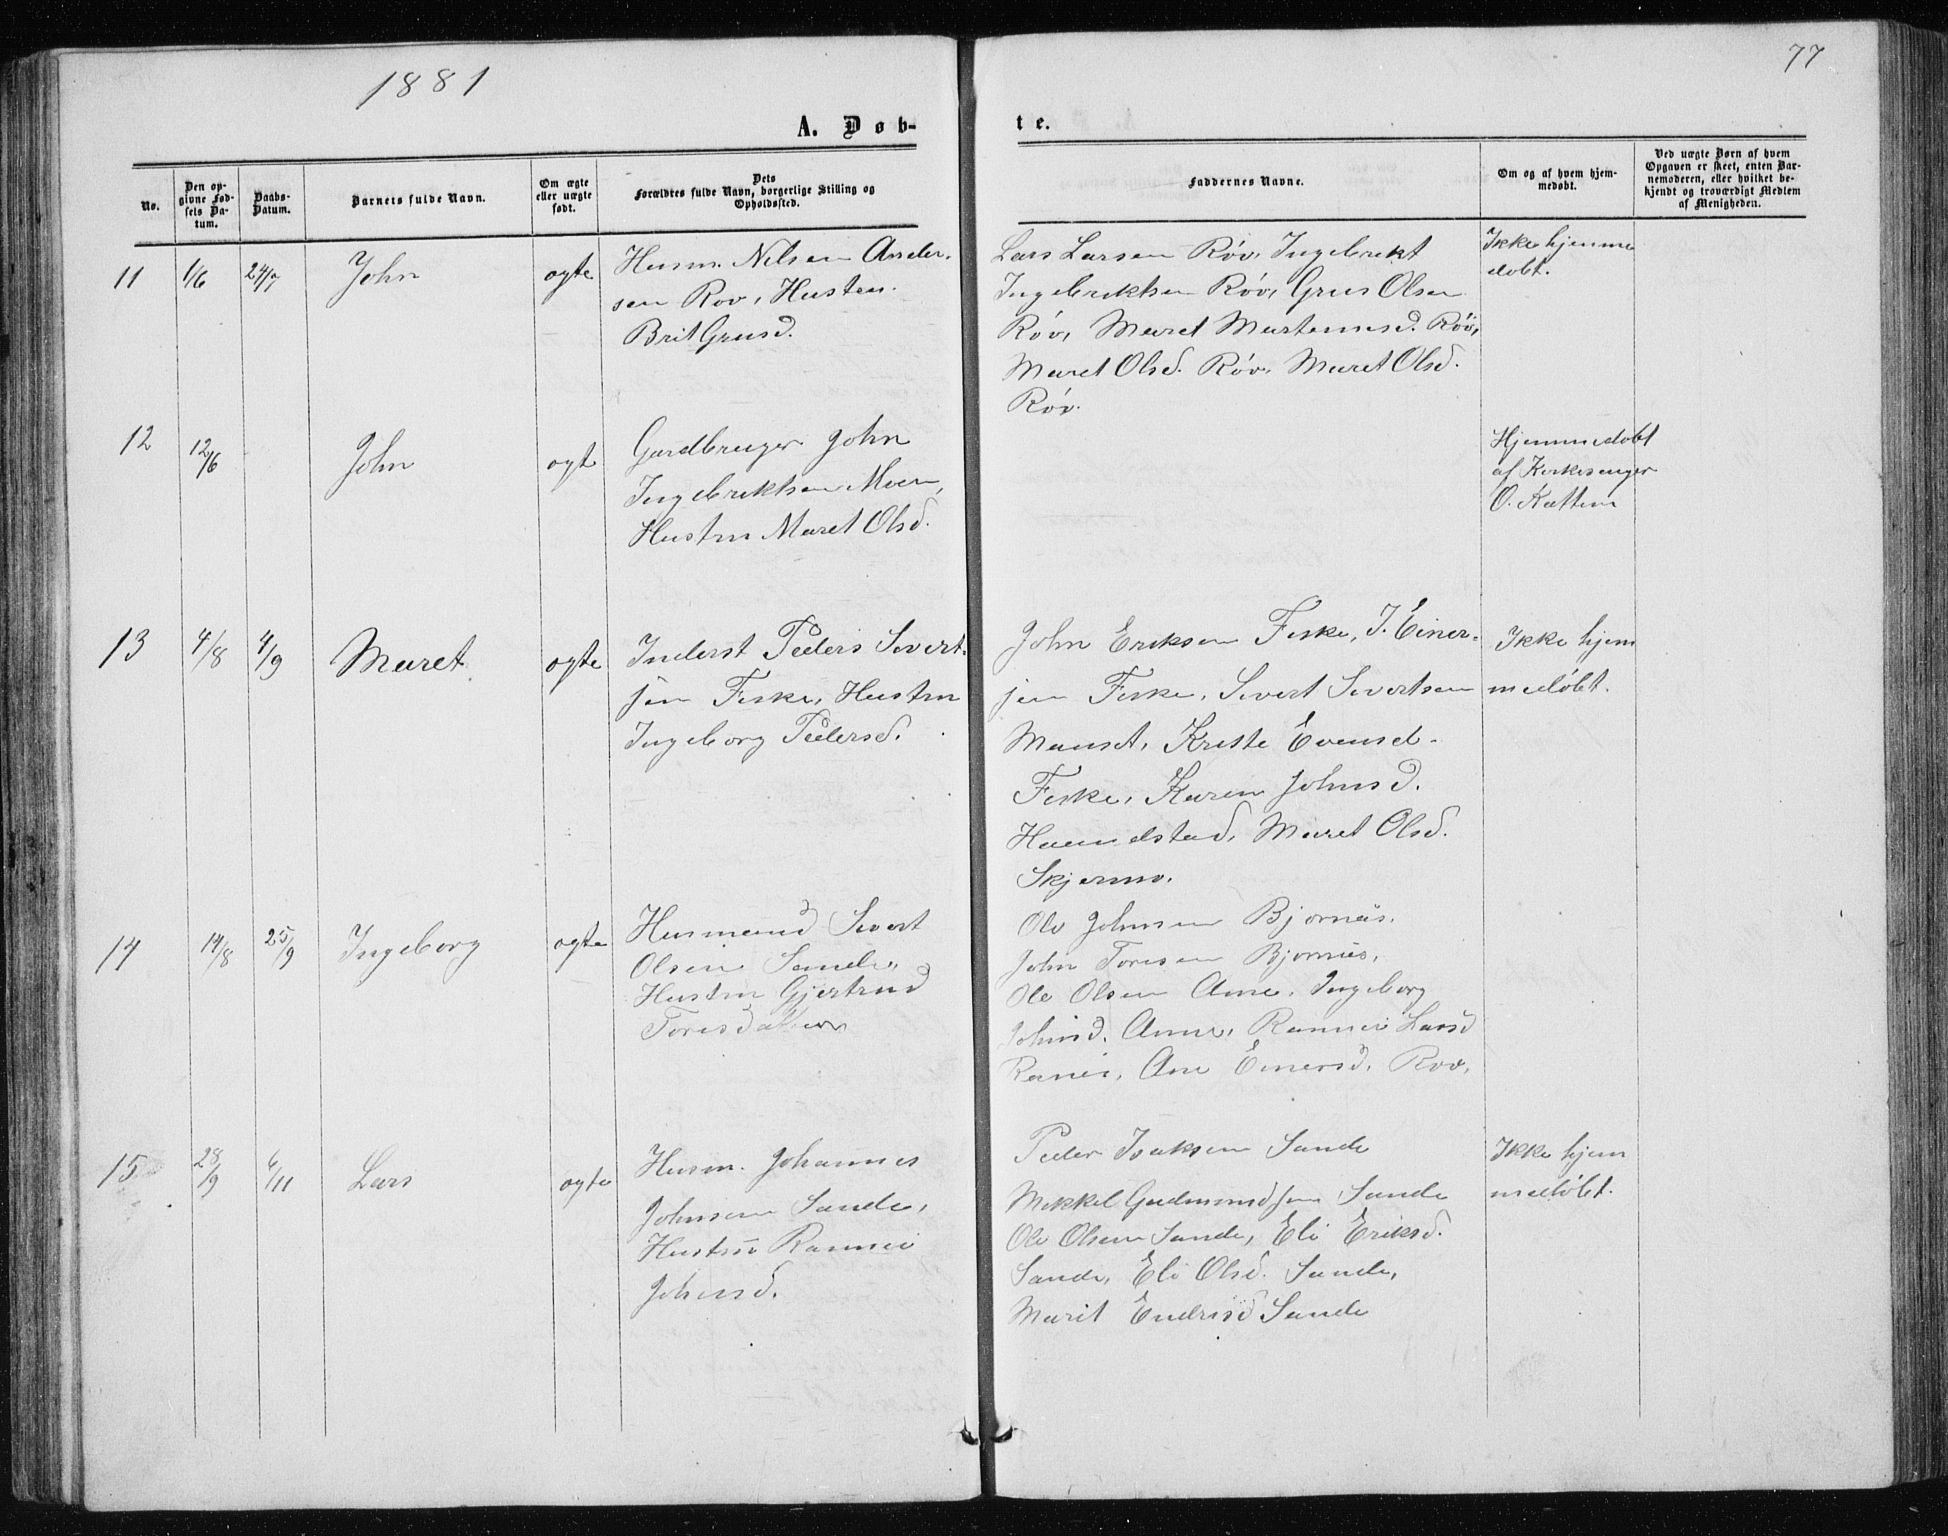 1881
77
A. Døb-
te.
No.
Den op-
givne Fød-
sels Da-
tum.
Daabs-
Datum.
Barnets fulde Navn.
Om ægte
eller uægte
født.
Dets
Forældres fulde Navn, borgerlige Stilling og
Opholdssted.
Faddernes Navne.
Om og af hvem hjem-
medøbt.
Ved uægte Børn af hvem
Opgaven er skeet, enten Bar-
nemoderen, eller hvilket be-
kjendt og troværdigt Medlem
af Menigheden.
11 1/6 24/7 John ægte
Husm. Nilsen Ander-
sen Røv, Husteu.
Brit Grusd.
Lars Larsen Røv, Ingebrikt
Ingebriktsen Røv, Grus Olsen
Røv, Maret Martenusd. Røv,
Maret Olsd. Røv, Maret Olsd.
Røv.
Ikke hjemme
døbt.
12 12/6 John ægt
Gardbruger John
Ingebriktsen Moen,
Hustru Maret Olsd.
Hjemmedøbt
af Kirkesanger
O. Kattem
13 4/8 4/9 Maret ægte
Inderst Peders Sivert-
sen Feske, Hustru
Ingeborg Pedersd.
John Eriksen Feske, J. Einer-
sen Feske, Sivert Sivertsen
Manset, Kriste Evensd.
Feske, Karen Johnsd.
Haamdstad, Maret Olsd.
Skjermo.
Ikke hjem
medøbt.
14 14/8 25/9 Ingeborg ægte
Husmand Sivert
Olsen Sande,
Hustru Gjertrud
Toresdatter
Ole Johnsen Bjørnås.
John Toresen Bjørnås,
Ole Olsen Aune, Ingeborg
Johnsd. Aune, Rannei Larsd
Ranei, Ane Einersd. Røv.
15 28/9 6/11 Lars ægte
Husm. Johannes
Johnsen Sande,
Hustru Rannei
Johnsd.
Peder Isaksen Sande
Mikkel Gudmundsen Sande
Ole Olsen Sande, Eli Eriksd.
Sande, Eli Olsd. Sande,
Marit Endresd Sande
Ikke hjem
medøbt.